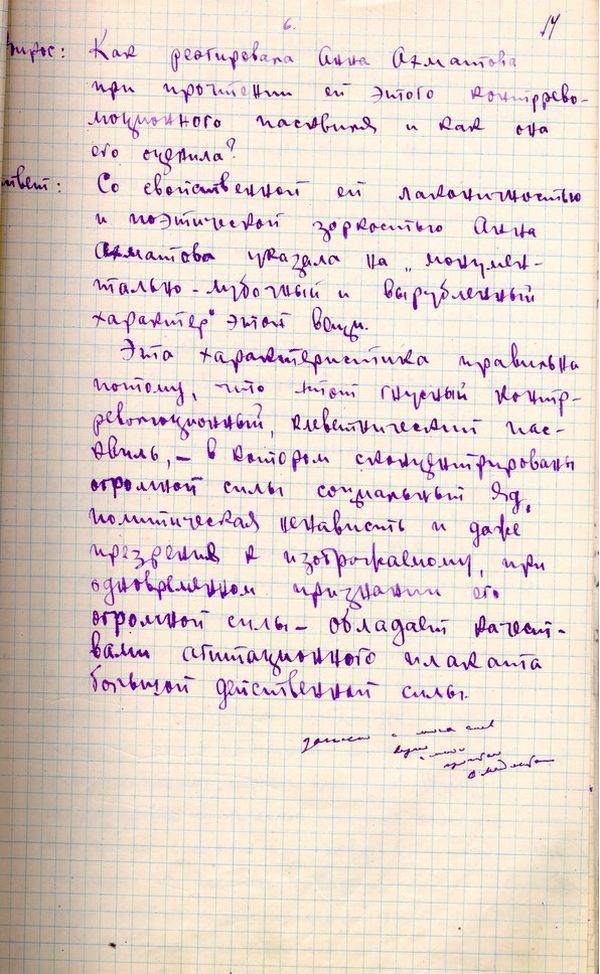 6.
17
Вопрос: Как реагировала Анна Ахматова
при прочтении ей этого контррево-
люционного пасквиля и как она
его оценила?
Ответ: Со свойственной ей лаконичностью
и поэтической зоркостью Анна
Ахматова указала на „монумен-
тально-лубочный и вырубленный
характер" этой вещи.
Эта характеристика правильна
потому, что этот гнусный контр-
революционный, клеветнический пас-
квиль, – в котором сконцентрированы
огромной силы социальный яд,
политическая ненависть и даже
презрение к изображаемому, при
одновременном признании его
огромной силы – обладает качест-
вами агитационного плаката
большой действенной силы.
записано с моих слов
верно
прочитано
О. Мандельштам